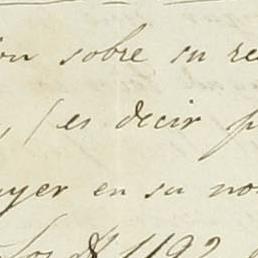 ion sobre su re
, (es decir p
uyer en su no
Los $ 1192